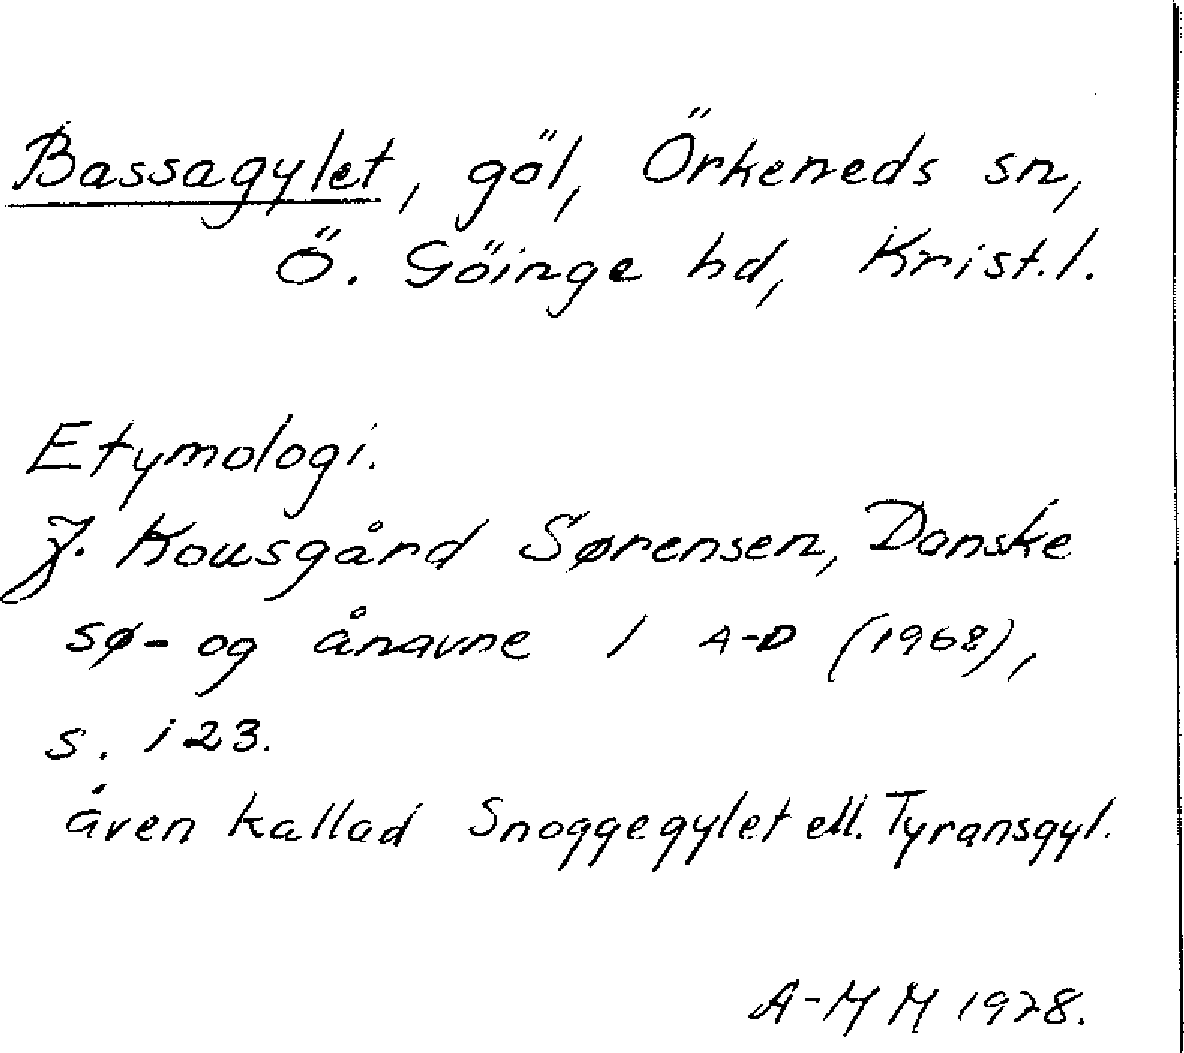 Bassagylet, göl, Örkeneds sn,
Ö. Göinge hd, Krist.l.
Etymologi.
J. Kousgård Sørensen, Danske
sø- og ånavne 1 A-D (1968),
s. 123.
även kallad Snoggegylet ell. Tyransgyl.
A-M M 1978.